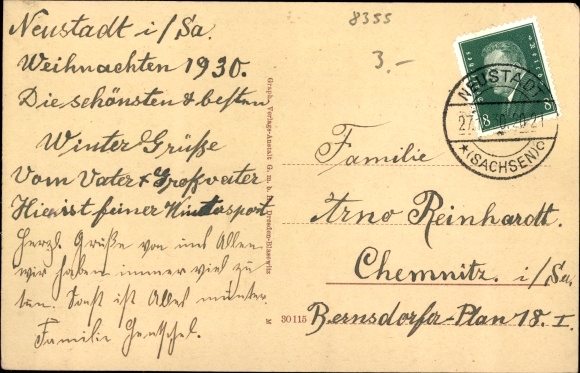 8355
3.-
Neustadt i/Sa.
Weihnachten 1930.
Die schönsten & besten
Winter Grüße
Vom Vater & Großvater
Hier ist feiner Wintersport
Herzl. Grüße von uns Allen
wir haben immer viel zu
tun. Sonst ist Alles munter.
Familie Hentschel.
Graph. Verlags-Anstalt G. m. b. H. Dresden-Blasewitz
M 30115
NEUSTADT
27. 30. 20-21
★(SACHSEN)c
8
Familie
Arno Reinhardt.
Chemnitz. i/Sa.
Bernsdorfer-Plan 18. I.